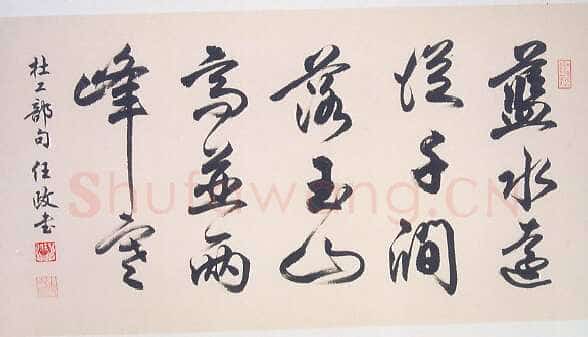 藍水遠
從千澗
落玉山
高並兩
峰寒
杜工部句 任政书
Shufawang.CN